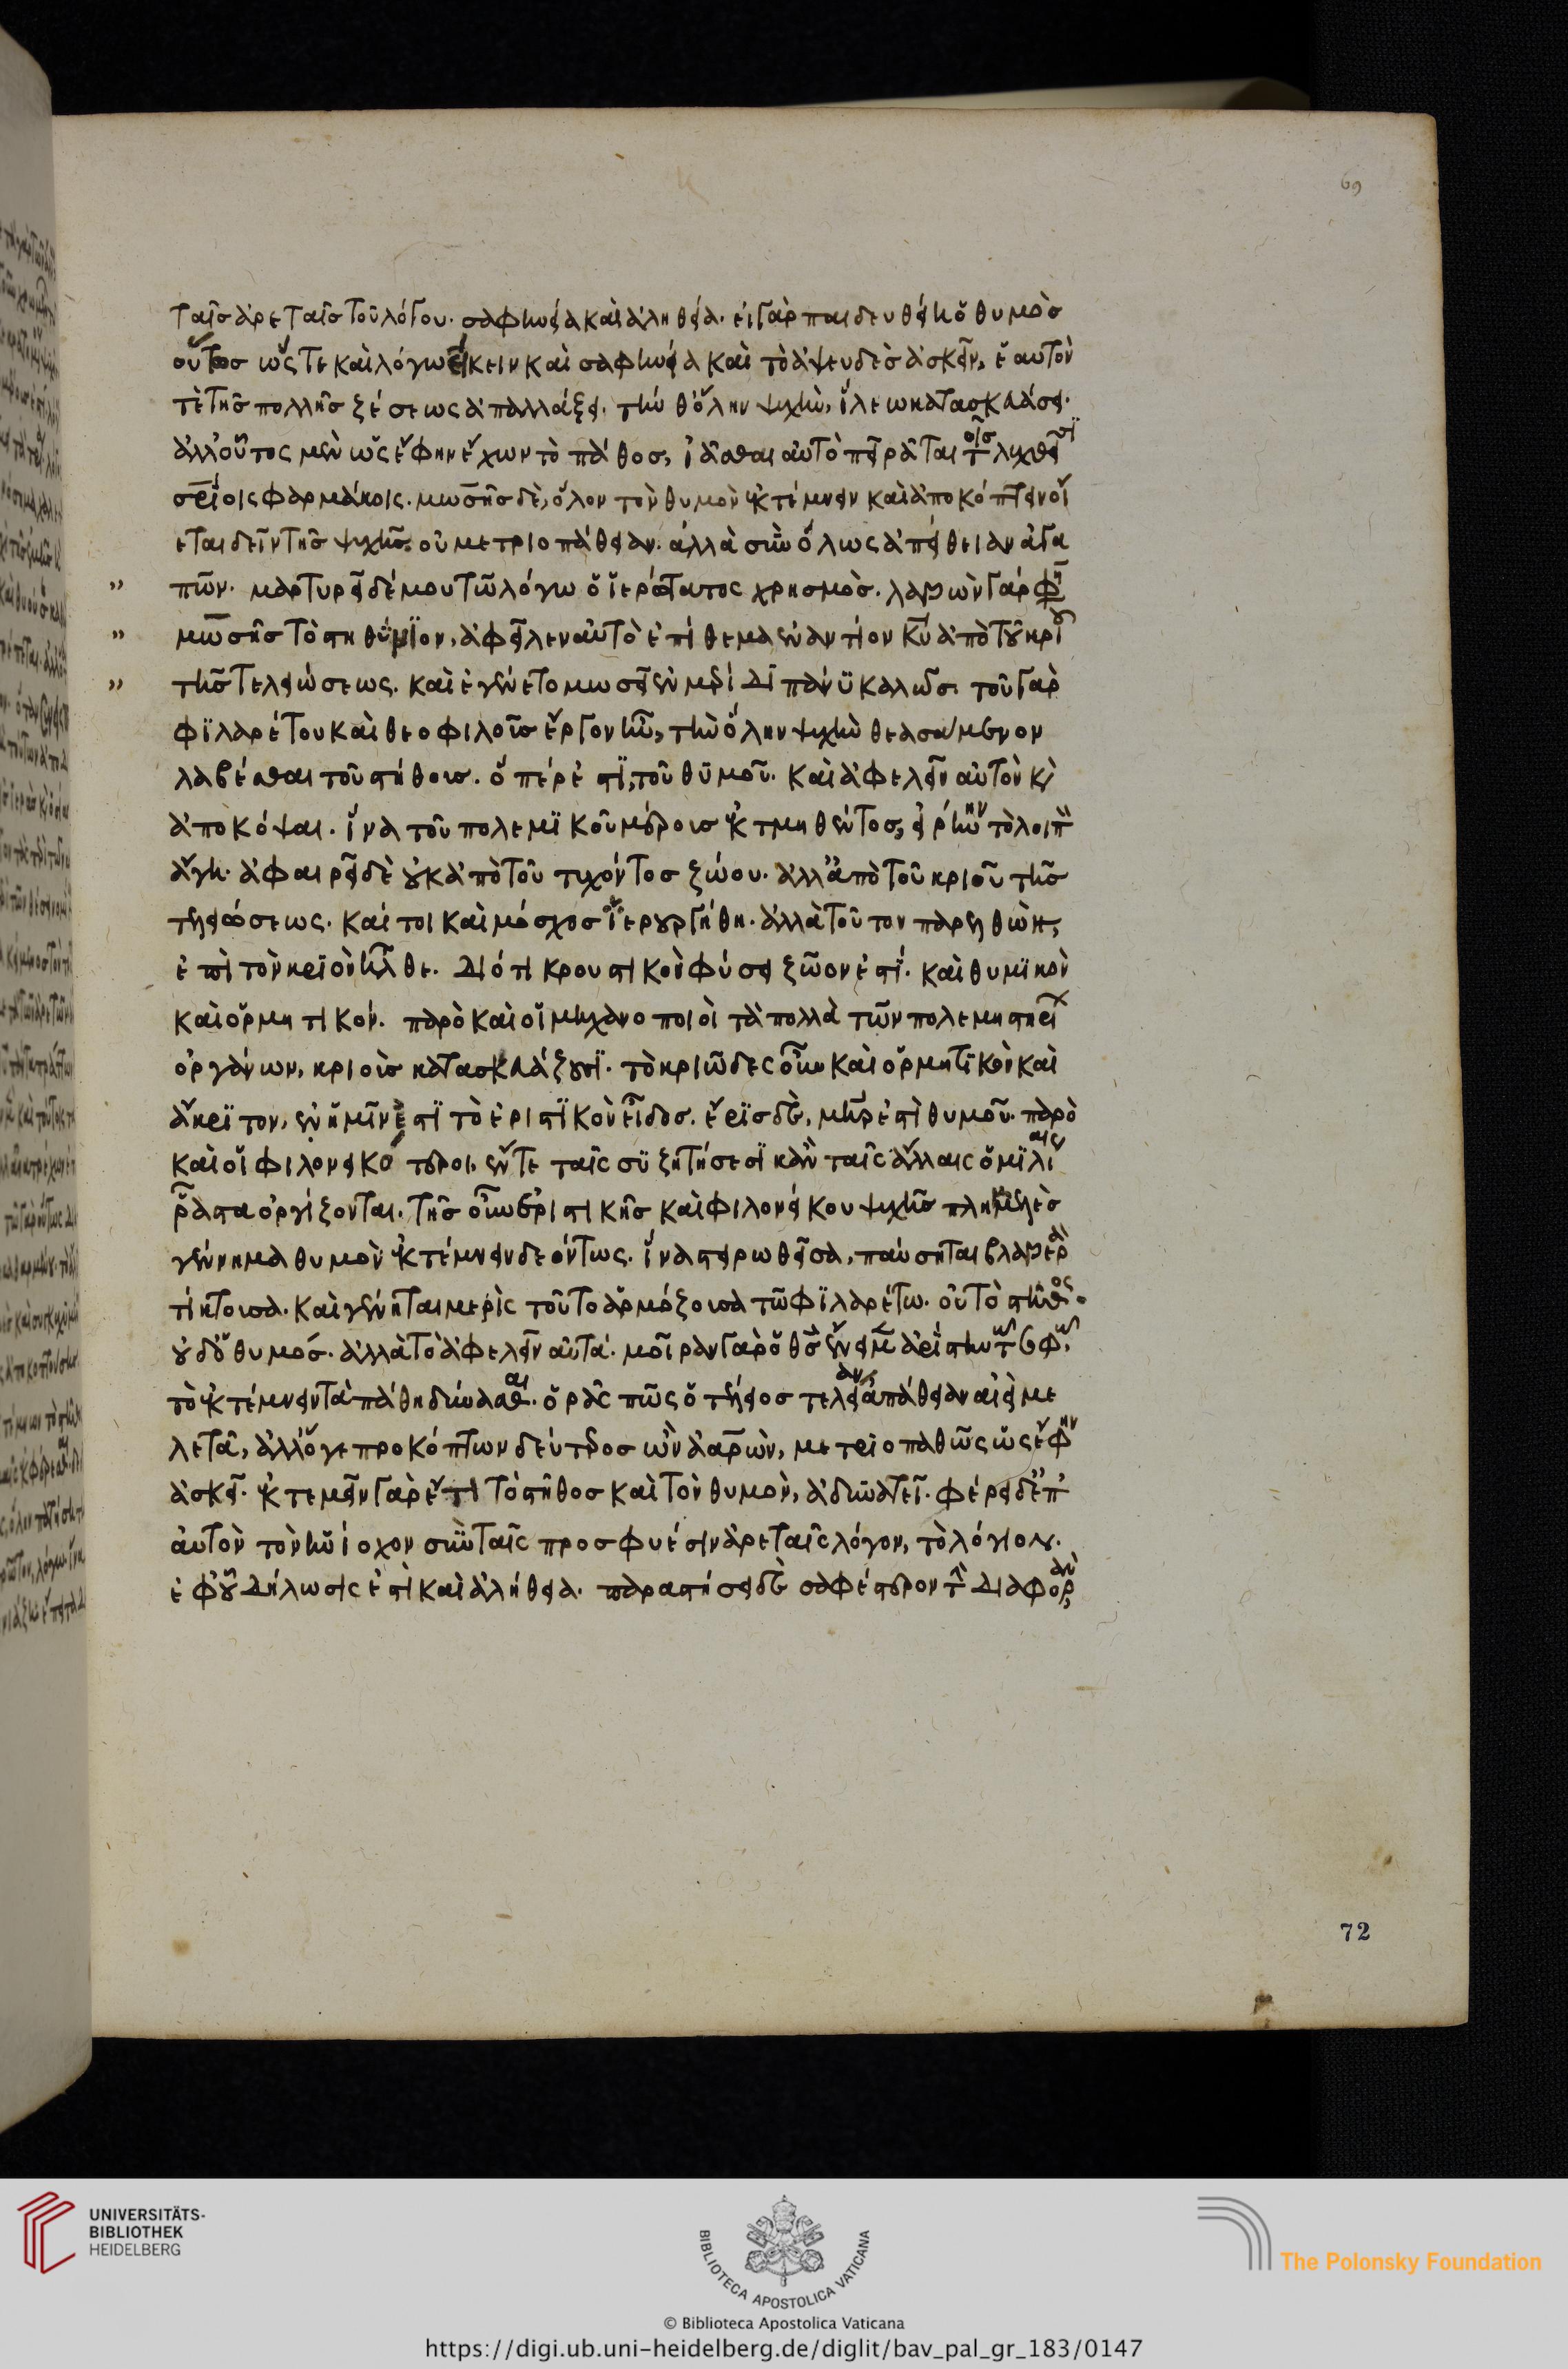 69
ταῖς ἀρεταῖς τοῦ λόγου· σαφηνεία καὶ ἀληθεία· εἰ γὰρ παιδευθείη ὁ θυμὸς
οὕτως ὥστε καὶ λόγω εἴκειν καὶ σαφηνεία καὶ τὸ ἀψευδὲς ἀσκεῖν, ἑαυτόν
τὲ τῆς πολλῆς ζέσεως ἀπαλλάξει. τήν θ' ὅλην ψυχὴν, ἵλεω κατασκευάσει·
ἀλλ' οὗτος μὲν ὡς ἔφην ἔχων τὸ πάθος, ἰᾶσθαι αὐτὸ πειρᾶται τοῖς λεχθεῖσι
σωτηρίοις φαρμάκοις. μωσῆς δὲ, ὅλον τὸν θυμὸν ἐκτέμνειν καὶ ἀποκόπτειν οἴ
εται δεῖν τῆς ψυχῆς. οὐ μετριοπάθειαν. ἀλλὰ συνόλως ἀπάθειαν ἀγα
πῶν. μαρτυρεῖ δέ μου τῶ λόγω ὁ ἱερώτατος χρησμὸς. λαβὼν γάρ φησι
μωσῆς τὸ στηθύνιον, ἀφεῖλεν αὐτὸ ἐπίθεμα ἐναντίον κυ ἀπὸ τοῦ κριοῦ
τῆς τελειώσεως. καὶ ἐγένετο μωσεῖ ἐν μερίδι πάνυ καλῶς. τοῦ γὰρ
φιλαρέτου καὶ θεοφιλοῦς ἔργον ἦν, τὴν ὅλην ψυχὴν θεασάμενον
λαβέσθαι τοῦ στήθους. ὅπερ ἐστὶ, τοῦ θυμοῦ. καὶ ἀφελεῖν αὐτὸν καὶ
ἀποκόψαι. ἵνα τοῦ πολεμικοῦ μέρους ἐκτμηθέντος, εἰρήνην τὸ λοιπὸν
ἄγη. ἀφαιρεῖ δὲ οὐκ ἀπὸ τοῦ τυχόντος ζώου. ἀλλ' ἀπὸ τοῦ κριοῦ τῆς
τελειώσεως. καί τοι καὶ μόσχος ἱερουργήθη. ἀλλὰ τοῦτον παρελθὼν,
ἐπὶ τὸν κριὸν ἦλθε. διότι κρουστικὸν φύσει ζῶον ἐστί. καὶ θυμικὸν
καὶ ὁρμητικόν. παρὸ καὶ οἱ μηχανοποιοὶ τὰ πολλὰ τῶν πολεμιστηρίων
ὀργάνων, κριοὺς κατασκευάζουσι. τὸ κριῶδες οὖν καὶ ὁρμητικὸν καὶ
ἄκριτον, ἐν ἡμῖν ἐστὶ τὸ ἐριστικὸν εἶδος. ἔρις δὲ, μήτηρ ἐστὶ θυμοῦ. παρὸ
καὶ οἱ φιλονεικότεροι, ἔν τε ταῖς συζητήσεσι κἀν ταῖς ἄλλαις ὁμιλίαις
ῥᾶστα ὀργίζονται. τῆς οὖν ἐριστικῆς καὶ φιλονείκου ψυχῆς πλημμελὲς
γέννημα θυμὸν ἐκτέμνειν δεόντως. ἵνα στειρωθεῖσα, παύσηται βλαβερὰ
τίκτουσα. καὶ γένηται μερὶς τοῦτο ἁρμόζουσα τῶ φιλαρέτω. οὐ τὸ στῆθος.
οὐδ' ὁ θυμός. ἀλλὰ τὸ ἀφελεῖν αὐτά. μοῖραν γὰρ ὁ θς ἔνειμεν ἀρίστην τῶ σοφῶ,
τὸ ἐκτέμνειν τὰ πάθη δύνασθαι. ὁρᾶς πῶς ὁ τέλειος τελείαν ἀπάθειαν αἰεὶ με
λετᾶ, ἀλλ' ὅγε προκόπτων δεύτερος ὢν ἀαρὼν, μετριοπαθῶς ὡς ἔφην
ἀσκεῖ. ἐκτεμεῖν γὰρ ἔτι τὸ στῆθος καὶ τὸν θυμὸν, ἀδυνατεῖ. φέρει δὲ ἐπ'
αὐτὸν τὸν ἡνίοχον σὺν ταῖς προσφυέσιν ἀρεταῖς λόγον, τὸ λόγιον.
ἐφ' οὗ δήλωσις ἐστὶ καὶ ἀλήθεια. παραστήσει δὲ σαφέστερον τὴν διαφορὰν
72
UNIVERSITÄTS-
BIBLIOTHEK
HEIDELBERG
BIBLIOTECA APOSTOLICA VATICANA
The Polonsky Foundation
© Biblioteca Apostolica Vaticana
https://digi.ub.uni-heidelberg.de/diglit/bav_pal_gr_183/0147